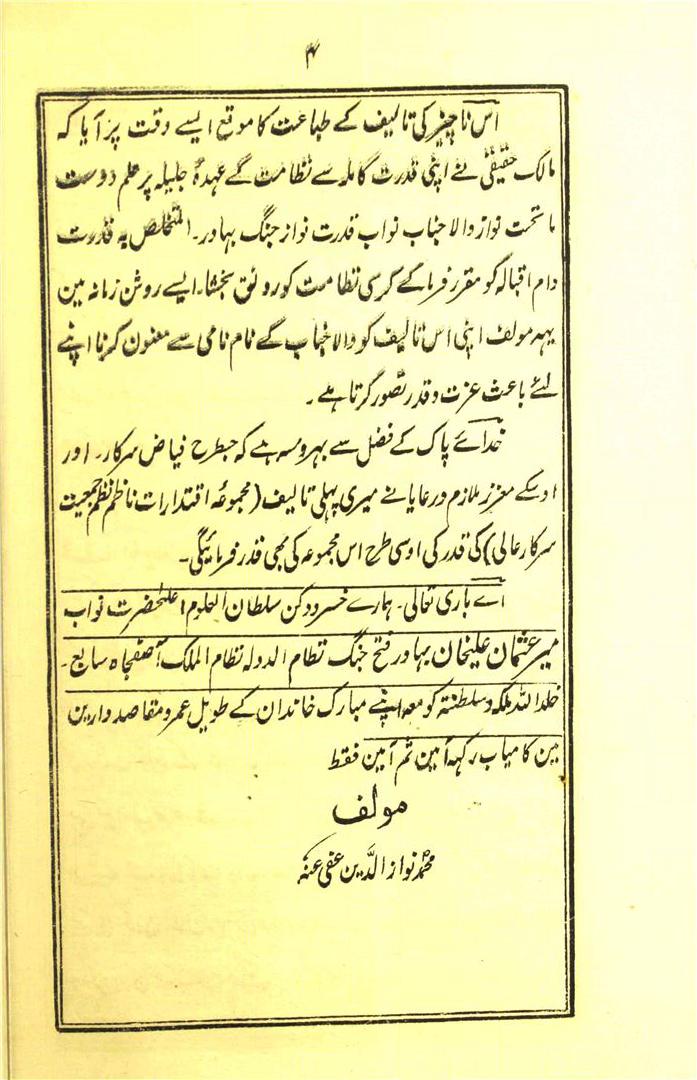 ۴
اس ناچیز کی تالیف کے طباعت کا موقع ایسے وقت پر آیا کہ
مالک حقیقی نے اپنی قدرت کاملہ سے نظامت کے عہدۂ جلیلہ پر علم دوست
ماتحت نواز والا جناب نواب قدرت نواز جنگ بہادر۔ المتخلص بہ قدرت
دام اقبالہ کو مقرر فرما کے کرسی نظامت کو رونق بخشا۔ ایسے روشن زمانہ مین
یہہ مولف اپنی اس تالیف کو والا جناب کے نام نامی سے معنون کرنا اپنے
لئے باعث عزت و قدر تصور کرتا ہے۔
خدائے پاک کے فضل سے بہروسہ ہے کہ جسطرح فیاض سرکار۔ اور
اوسکے معزز ملازم و رعایا نے میری پہلی تالیف (مجموعۂ اقتدارات ناظم نظم جمعیت
سرکار عالی) کی قدر کی اوسی طرح اس مجموعہ کی بھی قدر فرمائیگی۔
اے باری تعالی۔ ہمارے خسرو دکن سلطان العلوم اعلیحضرت نواب
میر عثمان علیخان بہادر فتح جنگ نظام الدولہ نظام الملک آصفجاہ سابع۔
خلد اللہ ملکہ و سلطنتہ کو معہ اپنے مبارک خاندان کے طویل عمر و مقاصد دارین
مین کامیاب رکہہ آمین ثم آمین فقط
مولف
محمد نواز الدین عفی عنہ